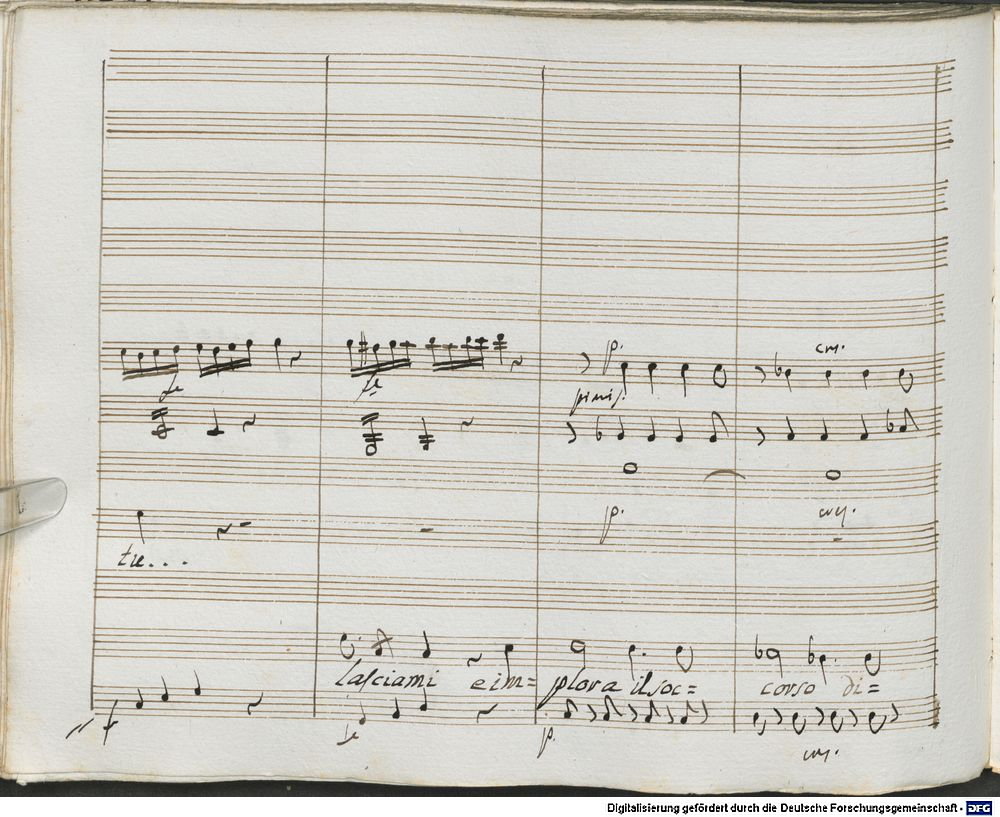 cm.
p.
fe fe pinis.
p.
tre...
lasciami e im= plora il soc= corso di=
f fe p.
Digitalisierung gefördert durch die Deutsche Forschungsgemeinschaft - DFG